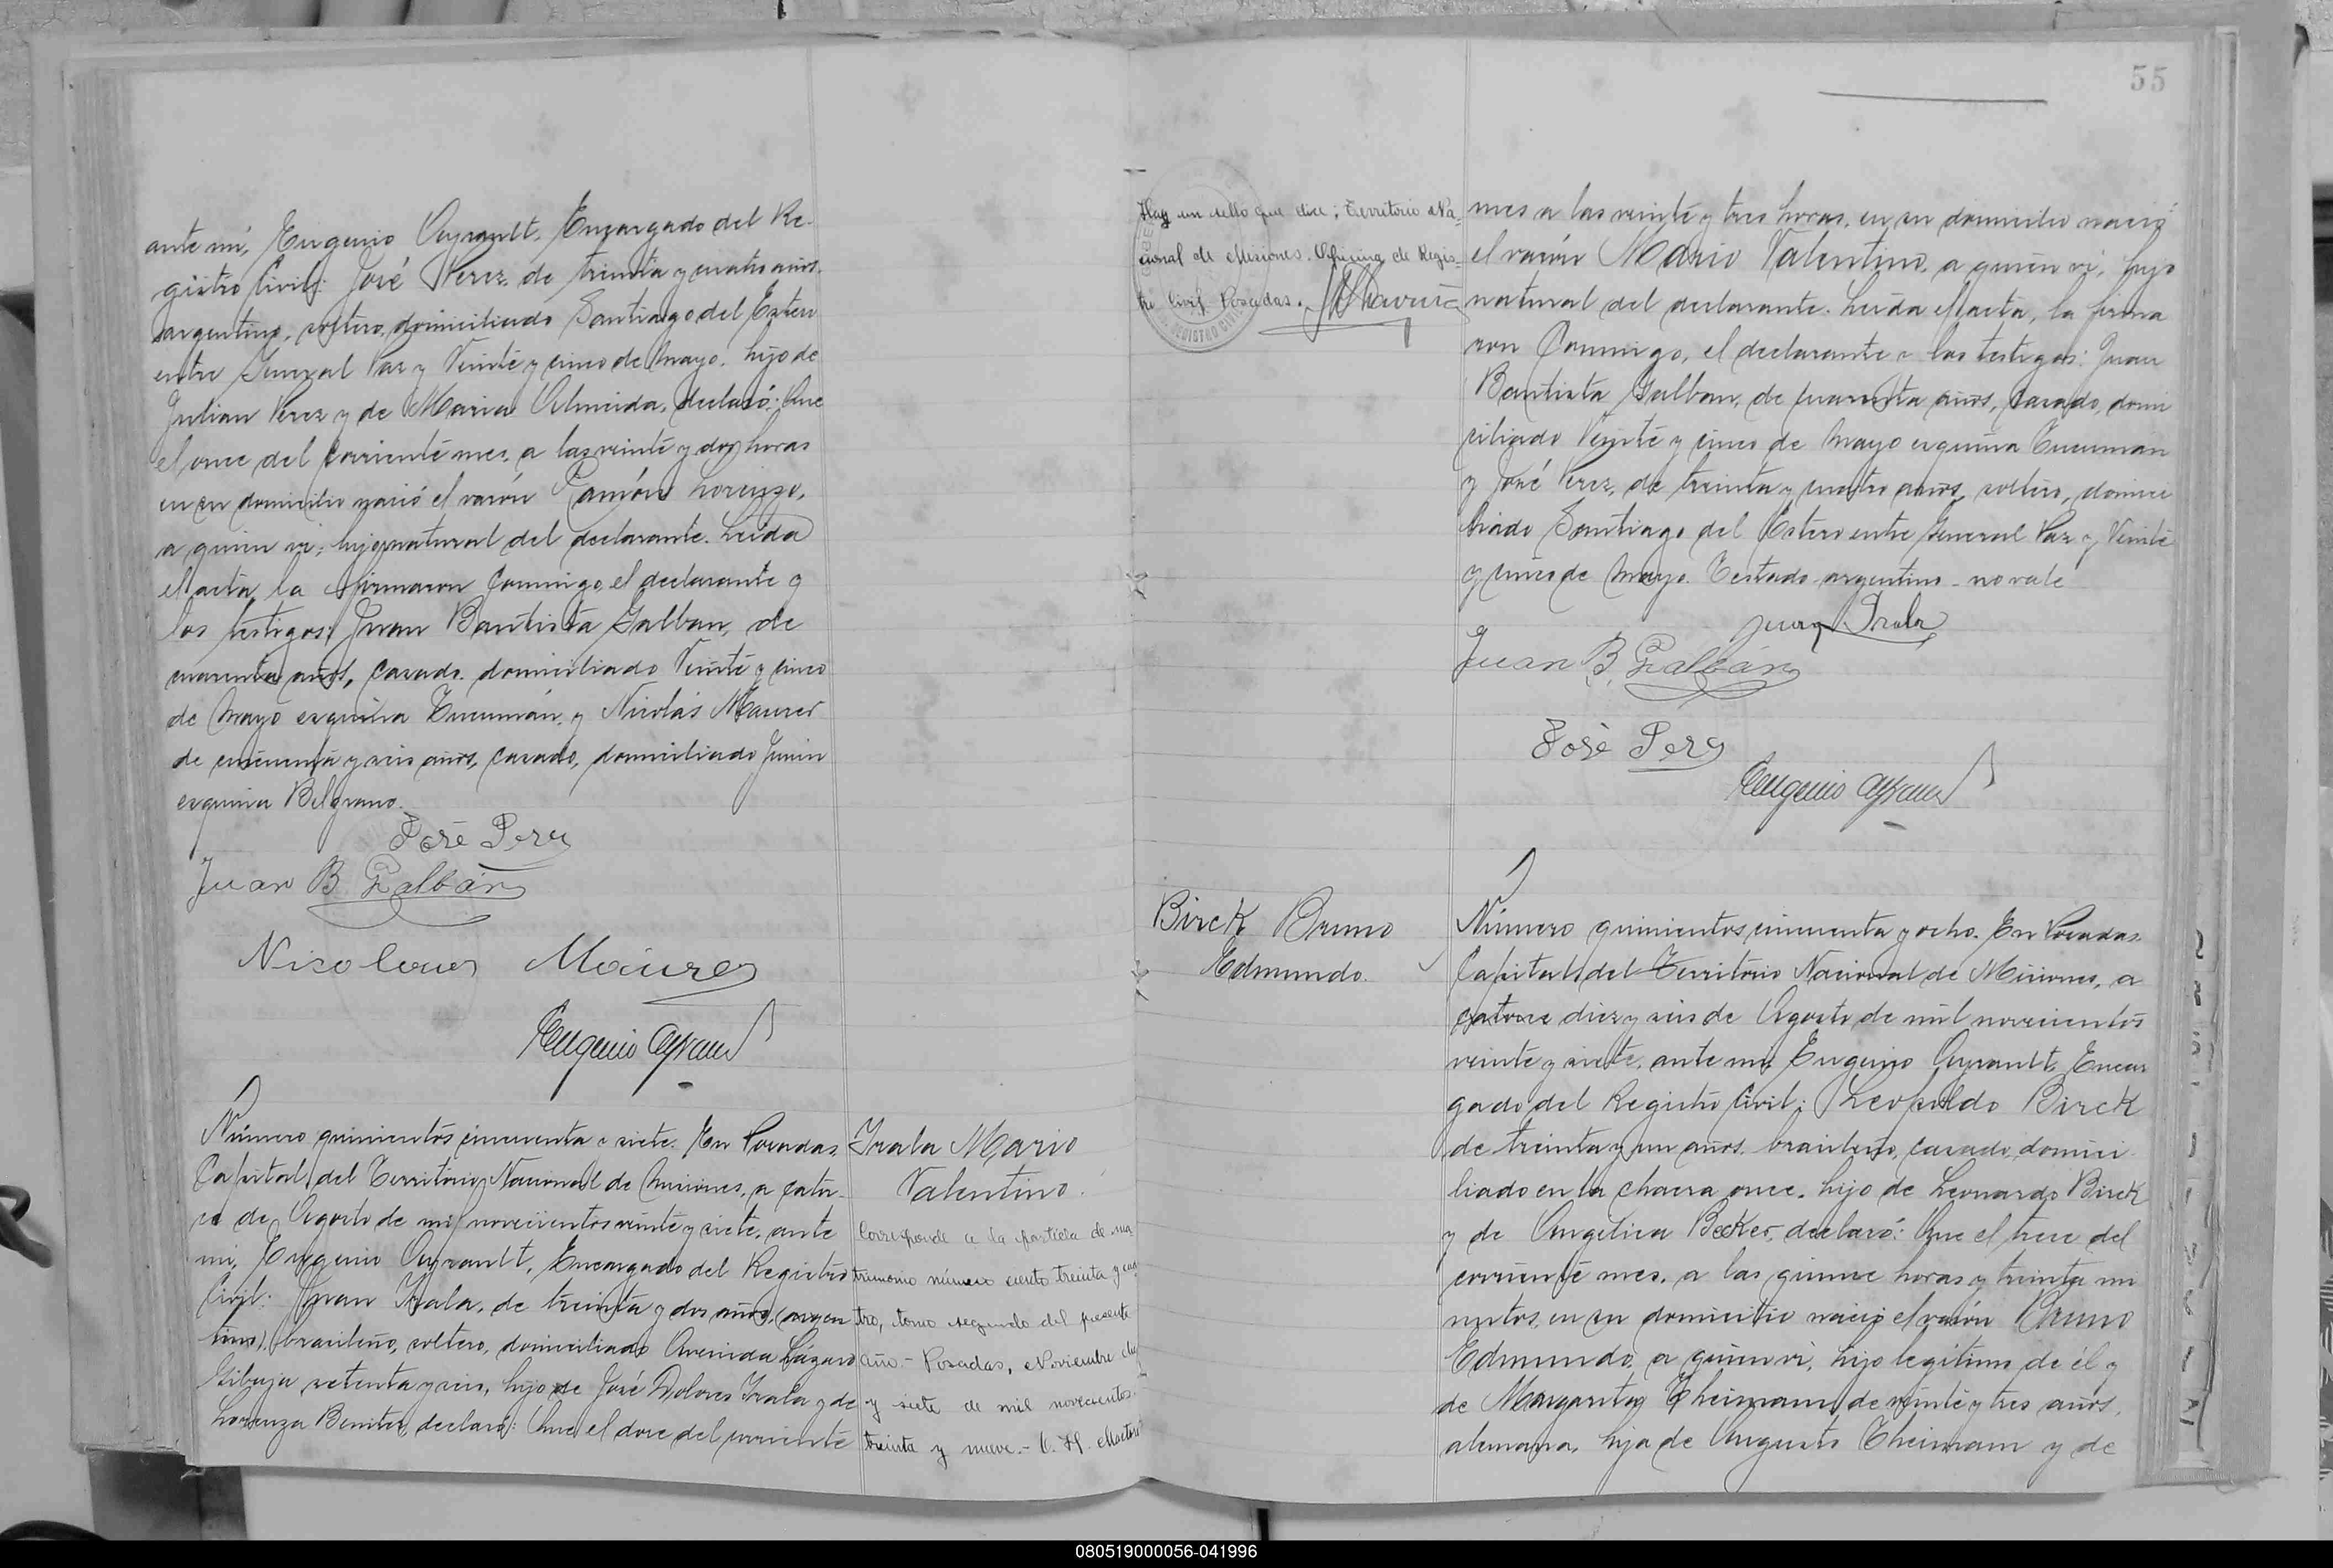 ante mí, Eugenio Ayrault, Encargado del Re-
gistro Civil: José Perez, de treinta y cuatro años,
argentino, soltero, domiciliado Santiago del Estero
entre General Paz y Veinte y cinco de Mayo, hijo de
Julian Perez y de Maria Almeida, declaró: Que
el once del corriente mes, a las veinte y dos horas
en su domicilio nació el varón Ramón Lorenzo,
a quien vi, hijo natural del declarante. Leida
el acta, la firmaron conmigo, el declarante y
los testigos: Juan Bautista Galban, de
cuarenta años, casado, domiciliado Veinte y cinco
de Mayo esquina Tucumán, y Nicolás Maurer
de cincuenta y seis años, casado, domiciliado Junin
esquina Belgrano.
José Perez
Juan B. Galbán
Nicolaus Maurer
Eugenio Ayrault
Número quinientos cincuenta y siete. En Posadas,
Capital del Territorio Nacional de Misiones, a cator-
ce de Agosto de mil novecientos veinte y siete, ante
mi, Eugenio Ayrault, Encargado del Registro
Civil: Juan Irala, de treinta y dos años, (argen
tino) brasileño, soltero, domiciliado Avenida Lázaro
Gibaja setenta y seis, hijo de José Dolores Irala y de
Lorenza Benitez, declaró: Que el doce del corriente
Irala Mario
Valentino.
Corresponde a la partida de ma-
trimonio número ciento treinta y cua
tro, tomo segundo del presente
año.- Posadas, Noviembre
y siete de mil novecientos
treinta y nueve.-
55
Hay un sello que dice: Territorio Na-
cional de Misiones. Oficina de Regis-
tro Civil Posadas.
mes a las veinte y tres horas, en su domicilio nació
el varón Mario Valentino, a quien vi, hijo
natural del declarante. Leida el acta, la firma
ron conmigo, el declarante y los testigos: Juan
Bautista Galban, de cuarenta años, casado, domi
ciliado Veinte y cinco de Mayo esquina Tucumán
y José Perez, de treinta y cuatro años, soltero, domici
liado Santiago del Estero entre General Paz y Veinte
y cinco de Mayo. Testado argentino no vale
Juan Irala
Juan B. Galbán
José Perez
Eugenio Ayrault
Birck Bruno
Edmundo.
Número quinientos cincuenta y ocho. En Posadas,
Capital del Territorio Nacional de Misiones, a
catorce diez y seis de Agosto de mil novecientos
veinte y siete, ante mi, Eugenio Ayrault, Encar
gado del Registro Civil: Leopoldo Birck
de treinta y un años, brasileño, casado, domici
liado en la chacra once, hijo de Leonardo Birck
y de Angelica Becker, declaró: Que el trece del
corriente mes, a las quince horas y treinta mi
nutos, en su domicilio nació el varón Bruno
Edmundo, a quien vi, hijo legitimo de él y
de Margarita Theimann, de veinte y tres años,
alemana, hija de Augusto Theimann y de
080519000056-041996